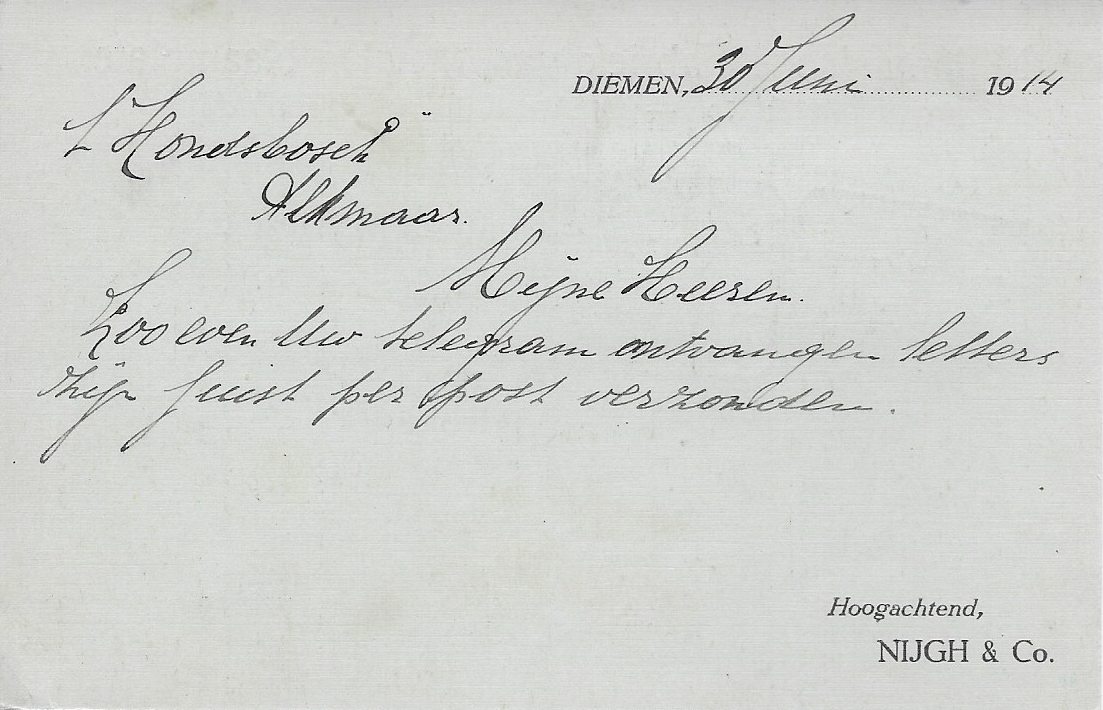 DIEMEN, 30 Juni 1914
't Hondsbosch
Alkmaar.
Mijne Heeren.
Zoo even Uw telegram ontvangen letters
zijn juist per post verzonden.
Hoogachtend,
NIJGH & Co.